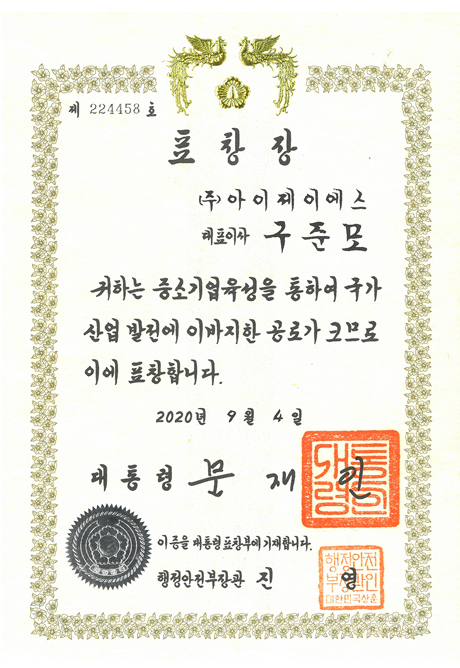 제 224458 호
표 창 장
(주) 아이제이에스
대표이사 구준모
귀하는 중소기업육성을 통하여 국가
산업 발전에 이바지한 공로가 크므로
이에 표창합니다.
2020년 9월 4일
대통령 문재인
대통령인
이 증을 대통령표창부에 기재합니다.
행정안전부장관 진 영
행정안전
부장관인
대한민국상훈